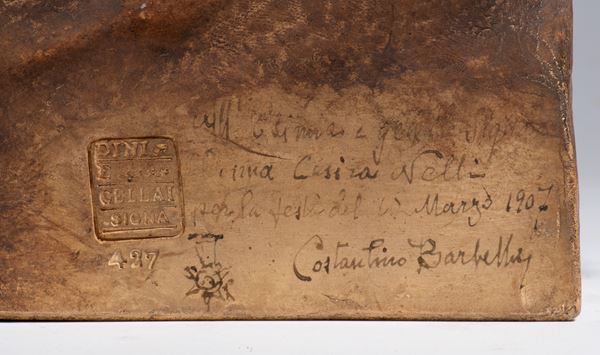 DINI
CELLAI
SIGNA
427
all' Ottima e gentil Signor
Cesira Nelli
per la festa del Marzo 1907
Costantino Barbella